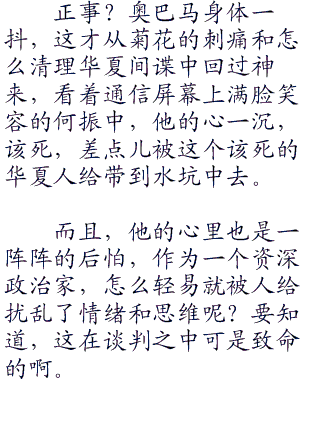 正事？奥巴马身体一
抖，这才从菊花的刺痛和怎
么清理华夏间谍中回过神
来，看着通信屏幕上满脸笑
容的何振中，他的心一沉，
该死，差点儿被这个该死的
华夏人给带到水坑中去。
而且，他的心里也是一
阵阵的后怕，作为一个资深
政治家，怎么轻易就被人给
扰乱了情绪和思维呢？要知
道，这在谈判之中可是致命
的啊。